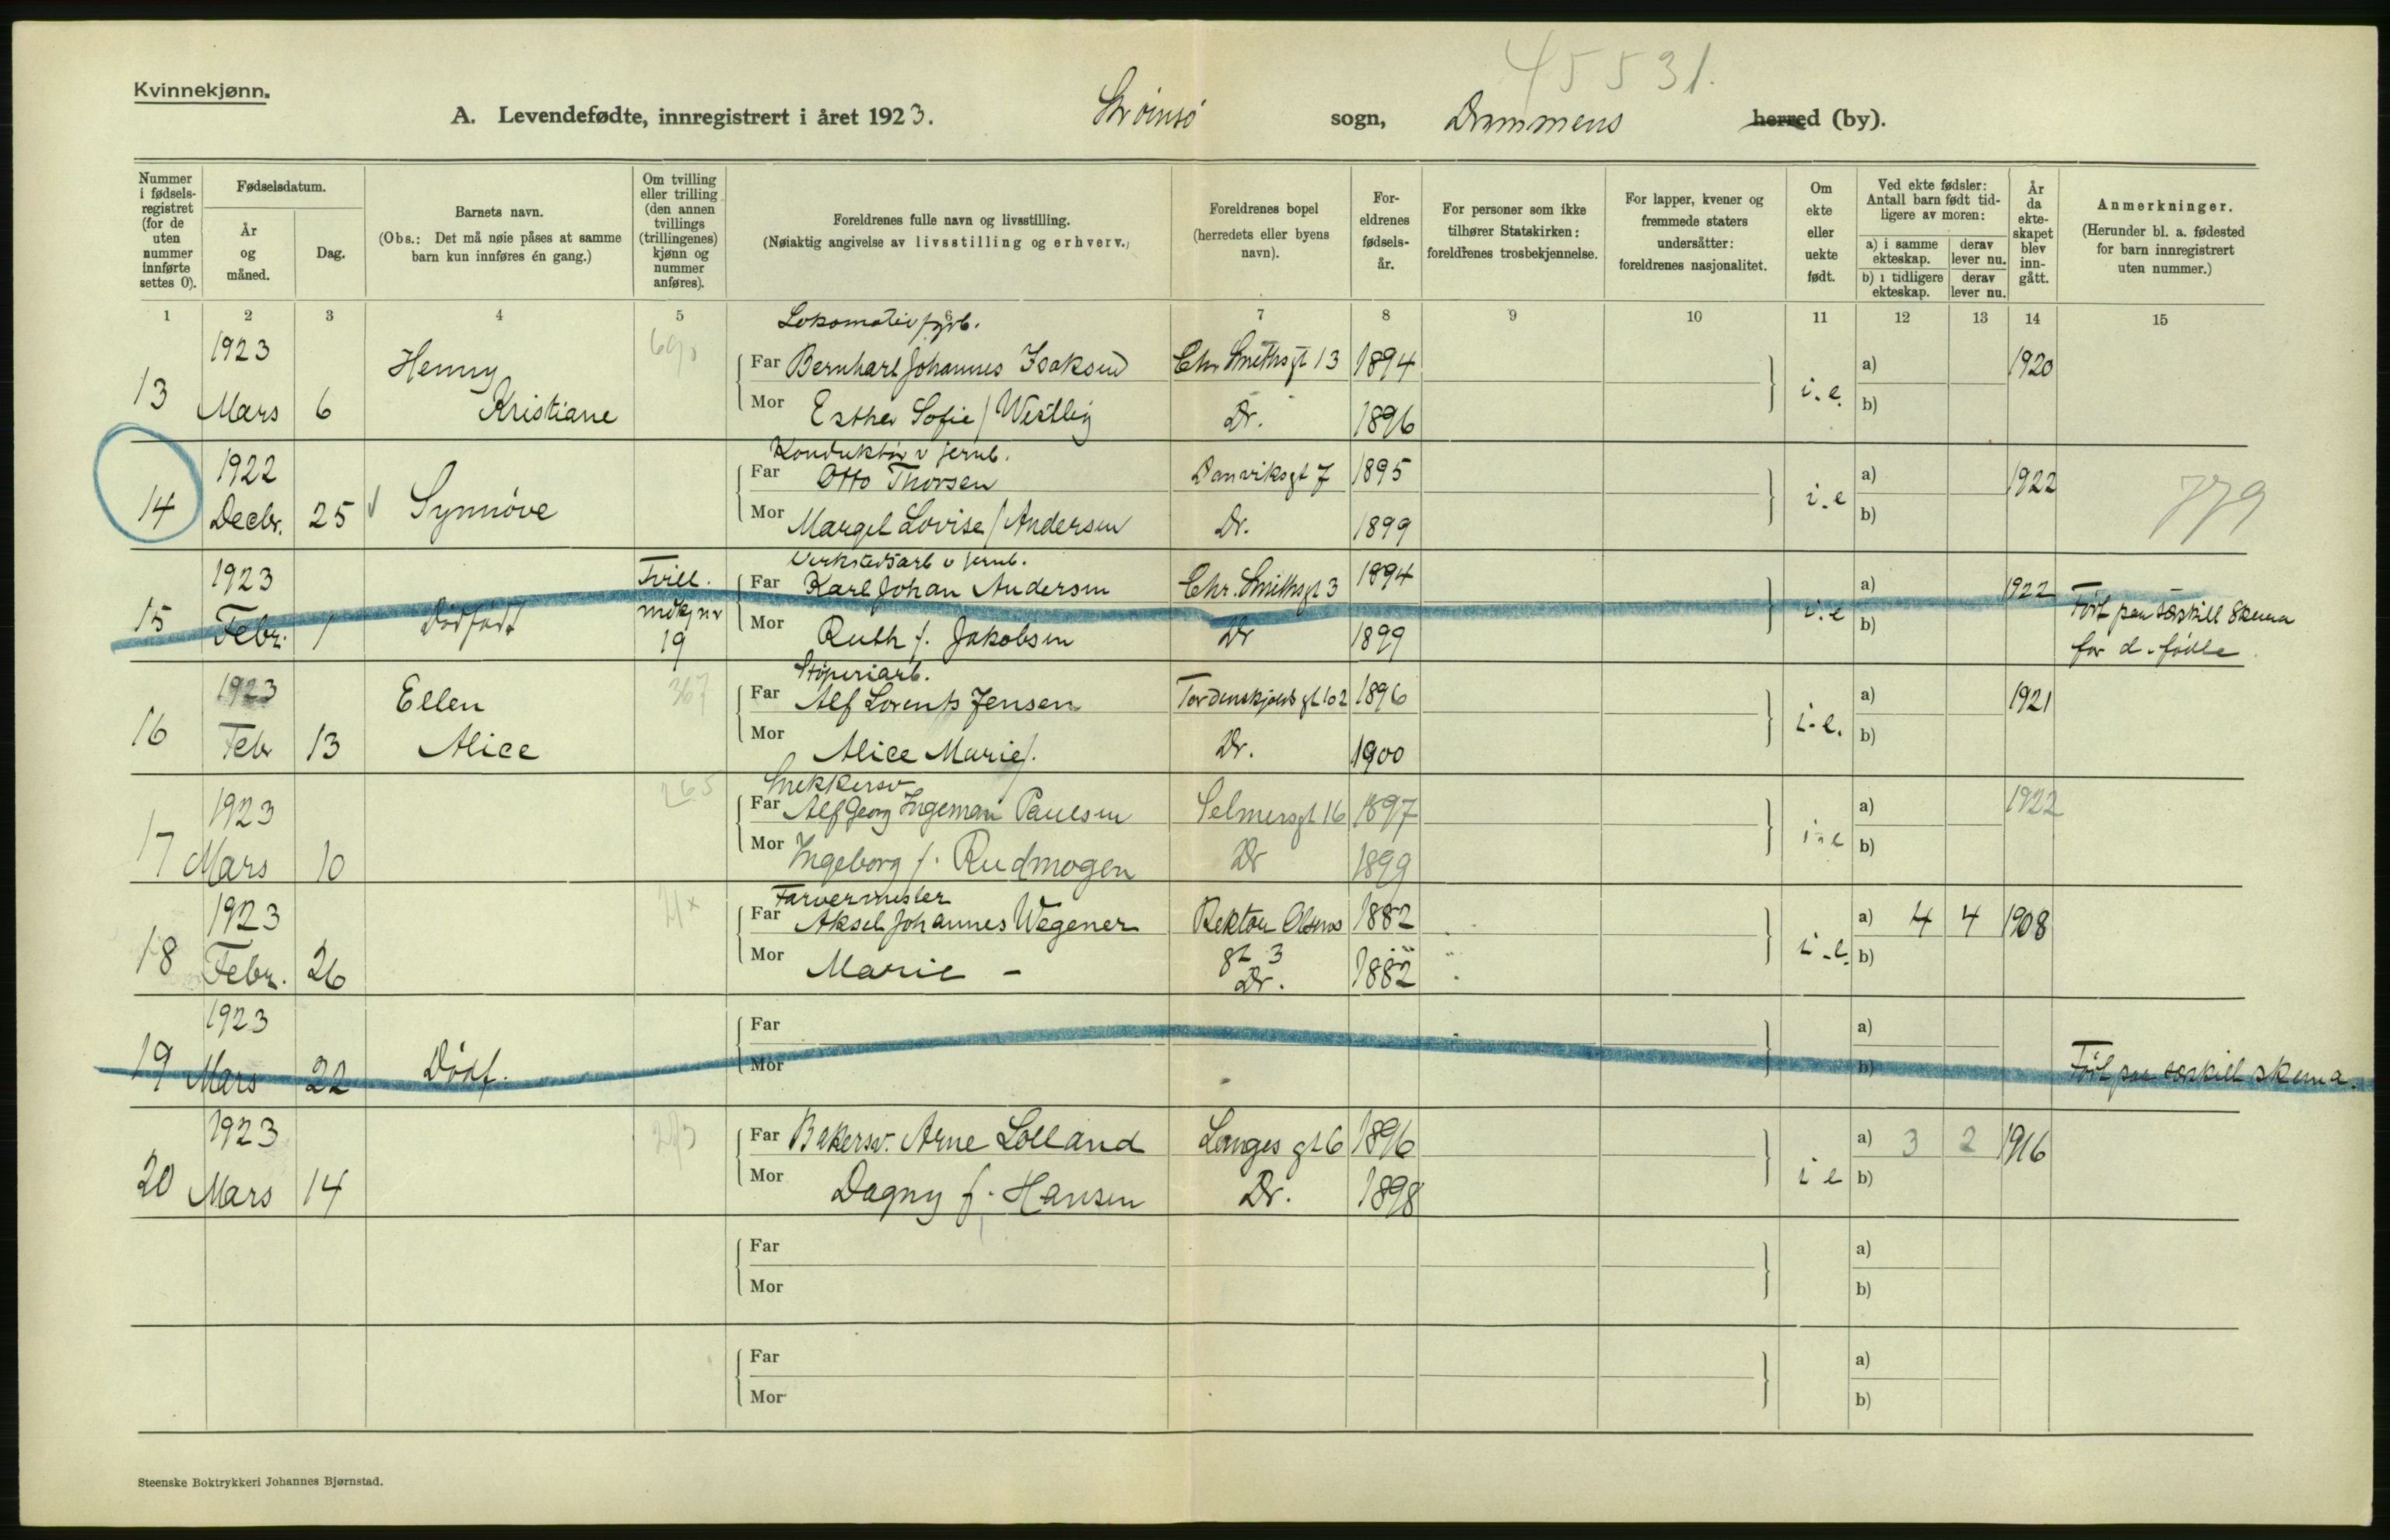 45531.
Kvinnekjønn.
A. Levendefødte, innregistrert i året 1923. Strømsø sogn, Drammens herred (by).
Nummer i fødsels-registret (for de uten nummer innførte settes 0).
Fødselsdatum.
År og måned.
Dag.
Barnets navn.
(Obs.: Det må nøie påses at samme barn kun innføres én gang.)
Om tvilling eller trilling (den annen tvillings (trillingenes) kjønn og nummer anføres).
Foreldrenes fulle navn og livsstilling.
(Nøiaktig angivelse av livsstilling og erhverv.)
Foreldrenes bopel (herredets eller byens navn).
For-eldrenes fødsels-år.
For personer som ikke tilhører Statskirken: foreldrenes trosbekjennelse.
For lapper, kvener og fremmede staters undersåtter: foreldrenes nasjonalitet.
Om ekte eller uekte født.
Ved ekte fødsler: Antall barn født tid-ligere av moren:
a) i samme ekteskap. derav lever nu.
b) i tidligere ekteskap. derav lever nu.
År da ekte-skapet blev inn-gått.
Anmerkninger.
(Herunder bl. a. fødested for barn innregistrert uten nummer.)
1 2 3 4 5 6 7 8 9 10 11 12 13 14 15
Lokomotivfyrb.
1923 Henny Far Bernhart Johannes Isaksen Chr Smithsgt 13 1894 a) 1920
13 Mars 6 Kristiane Mor Esther Sofie / Westby Dr. 1896 i.e. b)
Konduktør v jernb.
1922 Far Otto Thorsen Danviksgt 7 1895 a) 1922
14 Decbr. 25 Synnøve Mor Margit Lovise / Andersen Dr. 1899 i.e b) 779
Verkstedsarb v jernb.
1923 Tvill. Far Karl Johan Andersen Chr. Smithsgt 3 1894 a) 1922 Ført paa særskilt skema
15 Febr. 1 Dødfødt mdkj nr 19 Mor Ruth f. Jakobsen Dr 1899 i.e b) for d.fødte
Støperiarb.
1923 Ellen 367 Far Alf Lorents Jensen Tordenskjolds gt 102 1896 a) 1921
16 Febr 13 Alice Mor Alice Marie f. Dr. 1900 i.e. b)
Snekkersv
1923 265 Far Alf Georg Ingeman Paulsen Selmersgt 16 1897 a) 1922
17 Mars 10 Mor Ingeborg f. Rudmogen Dr 1899 i.e b)
Farvermester
1923 Far Aksel Johannes Wegener Rektor Olsens 1882 a) 4 4 1908
18 Febr. 26 Mor Marie - gt 3 Dr. 1882 i.e. b)
1923 Far a)
19 Mars 22 Dødf. Mor b) Ført paa særskilt skema.
1923 Far Bakersv. Arne Lolland Langes gt 6 1896 a) 3 2 1916
20 Mars 14 Mor Dagny f. Hansen Dr. 1898 i e b)
Far a)
Mor b)
Far a)
Mor b)
Steenske Boktrykkeri Johannes Bjørnstad.